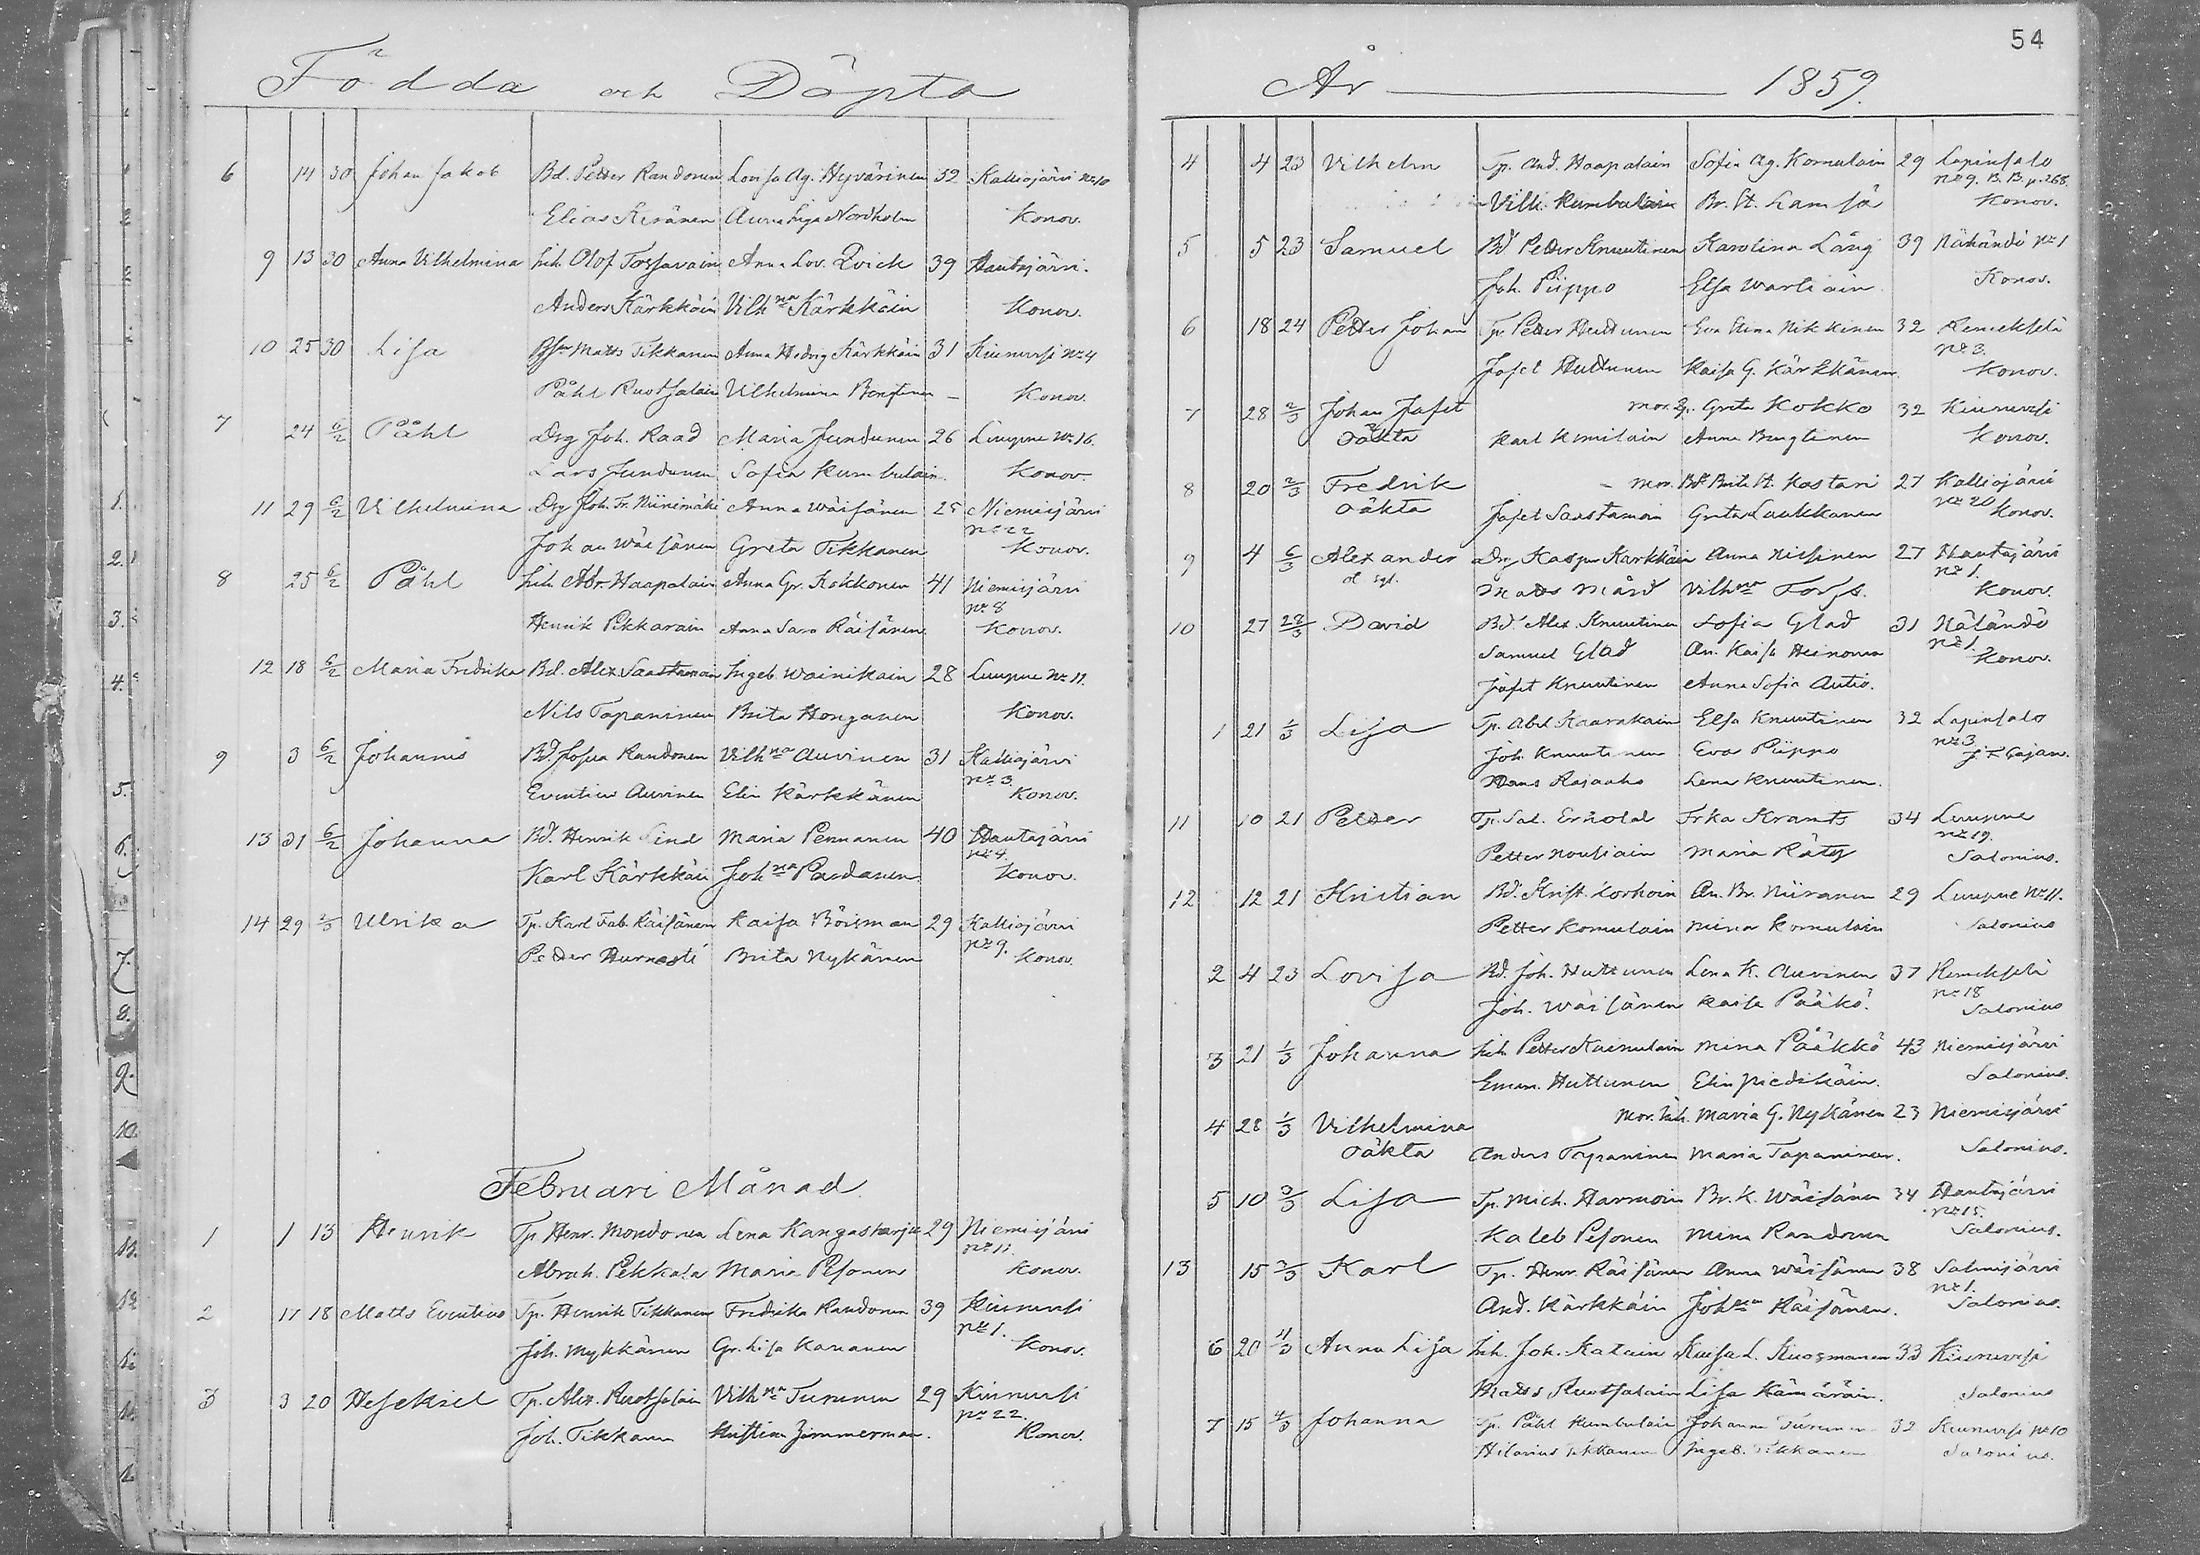 54
Födda och Döpta
6 14 30 Johan Jakob Bd. Petter Randonen Lovisa Ag. Hyvärinen 32 Kalliojärvi No 10
Elias Keränen Anna Lisa Nordholm Konov.
9 13 30 Anna Vilhelmina Inh. Olof Tossavain Anna Lov. Qvick 39 Hautajärvi.
Anders Kärkkäin Vilhna Kärkkäin Konov.
10 25 30 Lisa Matts Tikkanen Anna Hedvig Kärkkäin 31 Kiuruvesi No 4
Påhl Ruotsalain Vilhelmina Bengtinen – Konov.
7 24 6/2 Påhl Drg Joh. Raad Maria Jundunen 26 Luupue No 16.
Lars Jundunen Sofia Kumbulain Konov.
11 29 6/2 Vilhelmina Drg Joh. Fr. Niinimäki Anna Wäisänen 25 Niemisjärvi
No 22
Johan Wäisänen Greta Tikkanen Konov.
8 25 6/2 Påhl Inh. Abr. Haapalain Anna Gr. Kokkonen 41 Niemisjärvi
No 8
Henrik Pikkarain Anna Sara Räisänen Konov.
12 18 6/2 Maria Fredrika Bd. Alex Saastamoin Ingeb. Wainikain 28 Luupue No 11.
Nils Tapaninen Brita Honganen Konov.
9 3 6/2 Johannes Bd. Josua Randonen Vilhna Auvinen 31 Kalliojärvi
No 3
Eventius Auvinen Elin Kärkkänen Konov.
13 31 6/2 Johanna Bd. Henrik Lind Maria Pennanen 40 Hautajärvi
No 4
Karl Kärkkäin Johna Paudanen Konov.
14 29 2/3 Ulrika Tp. Karl Fab. Räisänen Kaisa Böisman 29 Kalliojärvi
No 9.
Petter Hurnasti Brita Nykänen Konov.
Februari Månad
1 1 13 Henrik Tp Henr. Mondonen Lena Kangasharju 29 Niemisjärvi
No 11
Abrah. Pekkala Maria Pesonen Konov.
2 17 18 Matts Eventius Tp. Henrik Tikkanen Fredrika Randonen 39 Kiuruvesi
No 1.
Joh. Mykkänen Gr. Lisa Kananen Konov.
3 3 20 Hesekiel Tp. Alex. Ruotsalain Vilhna Turunen 29 Kiuruvesi
No 22
Joh. Tikkanen Kristina Zimmerman. Konov.
År 1859.
4 4 23 Vilhelm Tp. And. Haapalain Sofia Ag. Komulain 29 Lapinsalo
No 9. B. B. p. 268.
Vilh. Kumbulain Br. St. Lamsä Konov.
5 5 23 Samuel Bd Petter Knuutinen Karolina Lång 39 Näländö No 1
Joh. Piippo Elsa Wartiain Konov.
6 18 24 Petter Johan Tp. Petter Huttunen Eva Stina Nikkinen 32 Remekselä
No 3.
Josef Huttunen Kaisa G. Kärkkänen Konov.
7 28 2/3 Johan Jafet mor. Greta Kokko 32 Kiuruvesi
oäkta Karl Komilain Anna Bengtinen Konov.
8 20 2/3 Fredrik – mor. Bd Brita St. Kastari 27 Kalliojärvi
No 20
oäkta Jafet Saastamoin Greta Laukkanen Konov.
9 4 6/3 Alexander Drg Kasper Karkkäin Anna Nissinen 27 Hautajärvi
No 1.
Matts Mård Vilhna Torss. Konov.
10 27 28/3 David Bd. Alex. Knuutinen Sofia Glad 31 Näländö
No 1.
Samuel Glad An. Kaisa Heinonen Konov.
Jafet Knuutinen Anna Sofia Autio.
1 21 1/3 Lisa Tp. Abel Kaarakain Elsa Knuutinen 32 Lapinsalo
No 3
Joh Knuutinen Eva Piippo J. F. Cajan.
Hans Rajaaho Lena Knuutinen
11 10 21 Petter Tp. Sal. Erhold Frka Krants 34 Luupue
No 19.
Petter Nousiain Maria Räty Salonius.
12 12 21 Kristian Bd. Krist. Korhoin An. Br. Niiranen 29 Luupue No 11.
Petter Komulain Mina Komulain Salonius
2 4 23 Lovisa Bd. Joh. Huttunen Lena K. Auvinen 37 Remekselä
No 18
Joh. Wäisänen Kaisa Pääkö. Salonius
3 21 1/3 Johanna Inh Petter Kainulain Mina Pääkkö 43 Niemisjärvi
Eman. Huttunen Elin Piedikäin. Salonius.
4 28 1/3 Vilhelmina mor. Inh. Maria G. Nykänen 23 Niemisjärvi
oäkta Anders Tapaninen Maria Tapaninen. Salonius.
5 10 3/3 Lisa Tp. Mich. Harmoin Br. K. Wäisänen 34 Hautajärvi
No 15.
Kaleb Pesonen Mina Randonen Salonius.
13 15 3/3 Karl Tp. Henr. Räisänen Anna Wäisänen 38 Salmisjärvi
No 1.
And. Kärkkäin Johna Räisänen. Salonius.
6 20 4/3 Anna Lisa Inh. Joh. Katain Kaisa L. Kuosmanen 33 Kiuruvesi
Matts Ruotsalain Lisa Kämäräin. Salonius
7 15 4/3 Johanna Tp. Påhl Kumbulain Johanna Turunen 32 Kiuruvesi No 10
Hilarius Tikkanen Ingeb. Tikkanen Salonius.